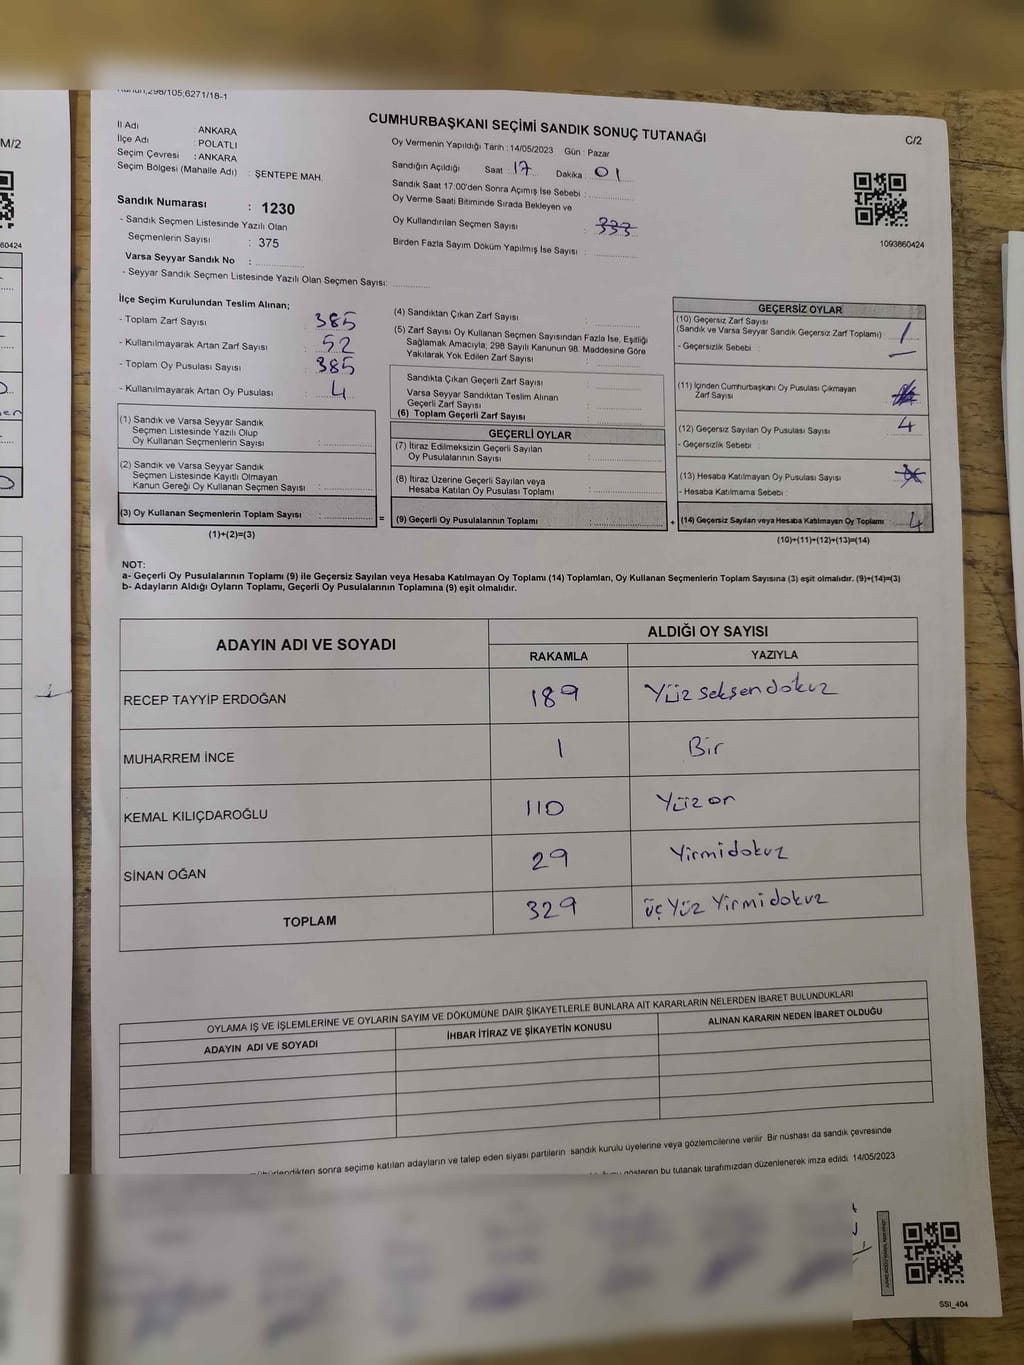 Kanun,298/105;6271/18-1
CUMHURBAŞKANI SEÇİMİ SANDIK SONUÇ TUTANAĞI
C/2
M/2
İl Adı : ANKARA
İlçe Adı : POLATLI
Seçim Çevresi : ANKARA
Seçim Bölgesi (Mahalle Adı) : ŞENTEPE MAH.
Sandık Numarası : 1230
- Sandık Seçmen Listesinde Yazılı Olan
Seçmenlerin Sayısı : 375
Varsa Seyyar Sandık No :
- Seyyar Sandık Seçmen Listesinde Yazılı Olan Seçmen Sayısı:
Oy Vermenin Yapıldığı Tarih : 14/05/2023 Gün : Pazar
Sandığın Açıldığı Saat : 17 Dakika : 01
Sandık Saat 17:00'den Sonra Açımış İse Sebebi :
Oy Verme Saati Bitiminde Sırada Bekleyen ve
Oy Kullandırılan Seçmen Sayısı : 333
Birden Fazla Sayım Döküm Yapılmış İse Sayısı :
1093860424
60424
İlçe Seçim Kurulundan Teslim Alınan;
- Toplam Zarf Sayısı : 385
- Kullanılmayarak Artan Zarf Sayısı : 52
- Toplam Oy Pusulası Sayısı : 385
- Kullanılmayarak Artan Oy Pusulası : 4
(1) Sandık ve Varsa Seyyar Sandık
Seçmen Listesinde Yazılı Olup
Oy Kullanan Seçmenlerin Sayısı :
(2) Sandık ve Varsa Seyyar Sandık
Seçmen Listesinde Kayıtlı Olmayan
Kanun Gereği Oy Kullanan Seçmen Sayısı :
(3) Oy Kullanan Seçmenlerin Toplam Sayısı :
(1)+(2)=(3)
=
(4) Sandıktan Çıkan Zarf Sayısı :
(5) Zarf Sayısı Oy Kullanan Seçmen Sayısından Fazla İse, Eşitliği
Sağlamak Amacıyla, 298 Sayılı Kanunun 98. Maddesine Göre
Yakılarak Yok Edilen Zarf Sayısı :
Sandıkta Çıkan Geçerli Zarf Sayısı :
Varsa Seyyar Sandıktan Teslim Alınan
Geçerli Zarf Sayısı :
(6) Toplam Geçerli Zarf Sayısı :
GEÇERLİ OYLAR
(7) İtiraz Edilmeksizin Geçerli Sayılan
Oy Pusulalarının Sayısı :
(8) İtiraz Üzerine Geçerli Sayılan veya
Hesaba Katılan Oy Pusulası Toplamı :
(9) Geçerli Oy Pusulalarının Toplamı :
+
GEÇERSİZ OYLAR
(10) Geçersiz Zarf Sayısı
(Sandık ve Varsa Seyyar Sandık Geçersiz Zarf Toplamı) :
- Geçersizlik Sebebi :
(11) İçinden Cumhurbaşkanı Oy Pusulası Çıkmayan
Zarf Sayısı :
(12) Geçersiz Sayılan Oy Pusulası Sayısı : 4
- Geçersizlik Sebebi :
(13) Hesaba Katılmayan Oy Pusulası Sayısı :
- Hesaba Katılmama Sebebi :
(14) Geçersiz Sayılan veya Hesaba Katılmayan Oy Toplamı : 4
(10)+(11)+(12)+(13)=(14)
NOT:
a- Geçerli Oy Pusulalarının Toplamı (9) ile Geçersiz Sayılan veya Hesaba Katılmayan Oy Toplamı (14) Toplamları, Oy Kullanan Seçmenlerin Toplam Sayısına (3) eşit olmalıdır. (9)+(14)=(3)
b- Adayların Aldığı Oyların Toplamı, Geçerli Oy Pusulalarının Toplamına (9) eşit olmalıdır.
ADAYIN ADI VE SOYADI
ALDIĞI OY SAYISI
RAKAMLA YAZIYLA
RECEP TAYYİP ERDOĞAN 189 Yüz seksen dokuz
MUHARREM İNCE 1 Bir
KEMAL KILIÇDAROĞLU 110 Yüz on
SİNAN OĞAN 29 Yirmi dokuz
TOPLAM 329 üç Yüz Yirmi dokuz
OYLAMA İŞ VE İŞLEMLERİNE VE OYLARIN SAYIM VE DÖKÜMÜNE DAİR ŞİKAYETLERLE BUNLARA AİT KARARLARIN NELERDEN İBARET BULUNDUKLARI
ADAYIN ADI VE SOYADI İHBAR İTİRAZ VE ŞİKAYETİN KONUSU ALINAN KARARIN NEDEN İBARET OLDUĞU
sonra seçime katılan adayların ve talep eden siyasi partilerin sandık kurulu üyelerine veya gözlemcilerine verilir. Bir nüshası da sandık çevresinde
gösteren bu tutanak tarafımızdan düzenlenerek imza edildi. 14/05/2023
SSI_404